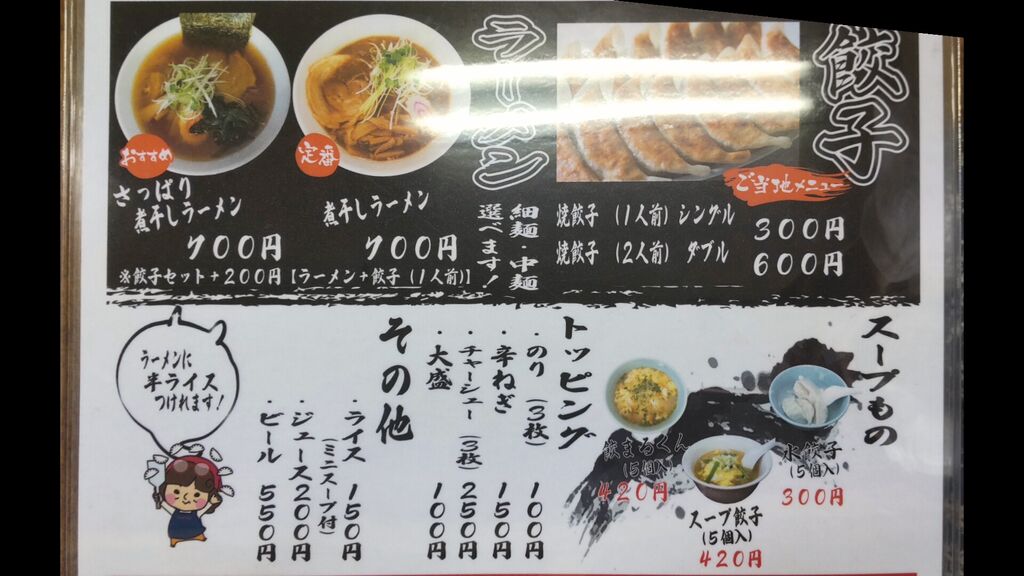 餃子
ご当地メニュー
焼餃子 (1人前) シングル 300円
焼餃子 (2人前) ダブル 600円
ラーメン
細麺・中麺
選べます!
定番
煮干しラーメン
700円
おすすめ
さっぱり
煮干しラーメン
700円
※餃子セット+200円【ラーメン+餃子(1人前)】
スープもの
水餃子
(5個入)
300円
スープ餃子
(5個入)
420円
飲まるくん
(5個入)
420円
トッピング
・のり(3枚) 100円
・辛ねぎ 150円
・チャーシュー(3枚) 250円
・大盛 100円
その他
・ライス(ミニスープ付) 150円
・ジュース 200円
・ビール 550円
ラーメンに
半ライス
つけれます!